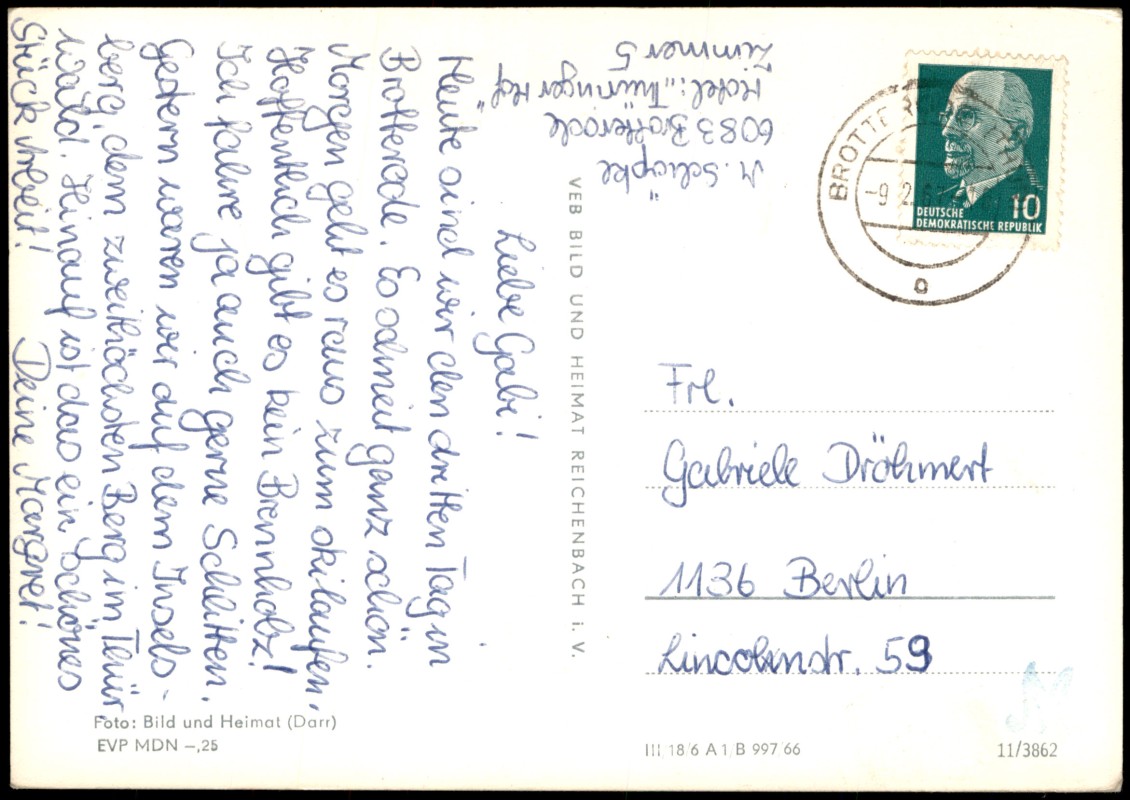 M. Schöpke
6083 Brotterode
Hotel: „Thüringer Hof"
Zimmer 5
Liebe Gabi!
Heute sind wir den dritten Tag in
Brotterode. Es schneit ganz schön.
Morgen geht es raus zum skilaufen,
Hoffentlich gibt es kein Brennholz!
Ich fahre ja auch gerne Schlitten.
Gestern waren wir auf dem Insels-
berg, dem zweithöchsten Berg im Tühr.
Wald. Hinauf ist das ein schönes
Stück Arbeit!
Deine Margret!
VEB BILD UND HEIMAT REICHENBACH i. V.
Foto: Bild und Heimat (Darr)
EVP MDN –,25
BROTTERODE
-9.2.67
a
10
DEUTSCHE
DEMOKRATISCHE REPUBLIK
Frl.
Gabriele Dröhmert
1136 Berlin
Lincolnstr. 59
III 18/6 A 1/B 997 66
11/3862